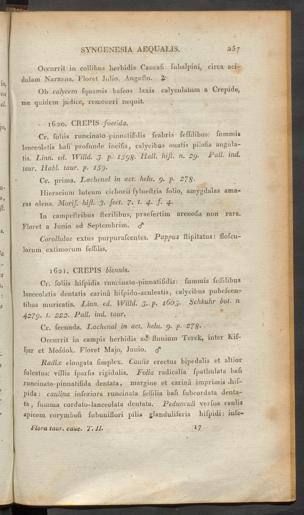 SYNGENESIA AEQUALIS. 257
Occurrit in collibus herbidis Caucasi subalpini, circa aci-
dulam Narzana. Floret Julio, Augusto. ♃
Ob calycem squamis baseos laxis calyculatum a Crepide,
me quidem judice, removeri nequit.
1620. CREPIS foetida.
Cr. foliis runcinato-pinnatifidis scabris sessilibus: summis
lanceolatis basi profunde incisis, calycibus ovatis pilosis angula-
tis. Linn. ed. Willd. 3. p. 1598. Hall. hist. n. 29. Pall. ind.
taur. Habl. taur. p. 159.
Cr. prima. Lachenal in act. helv. 9. p. 278.
Hieracium luteum cichorii sylvestris folio, amygdalas ama-
ras olens. Moris. hist. 3. sect. 7. t. 4. f. 4.
In campestribus sterilibus, praesertim arenosis non rara.
Floret a Junio ad Septembrim. ♂
Corollulae extus purpurascentes. Pappus stipitatus: floscu-
lorum extimorum sessilis.
1621. CREPIS biennis.
Cr. foliis hispidis runcinato-pinnatifidis: summis sessilibus
lanceolatis dentatis carina hispido-aculeatis, calycibus pubescen-
tibus muricatis. Linn. ed. Willd. 3. p. 1603. Schkuhr bot. n
4279. t. 222. Pall. ind. taur.
Cr. secunda. Lachenal in act. helv. 9. p. 278.
Occurrit in campis herbidis ad flumium Terek, inter Kis-
ljar et Mosdok. Floret Majo, Junio. ♂
Radix elongata simplex. Caulis erectus bipedalis et altior
sulcatus: villis sparsis rigidulis. Folia radicalia spathulata basi
runcinato-pinnatifida dentata, margine et carina imprimis his-
pida: caulina inferiora runcinata sessilia basi subcordata denta-
ta, summa cordato-lanceolata dentata. Pedunculi versus caulis
apicem corymbosi subuniflori pilis glanduliferis hispidi: infe-
Flora taur. cauc. T. II. 17